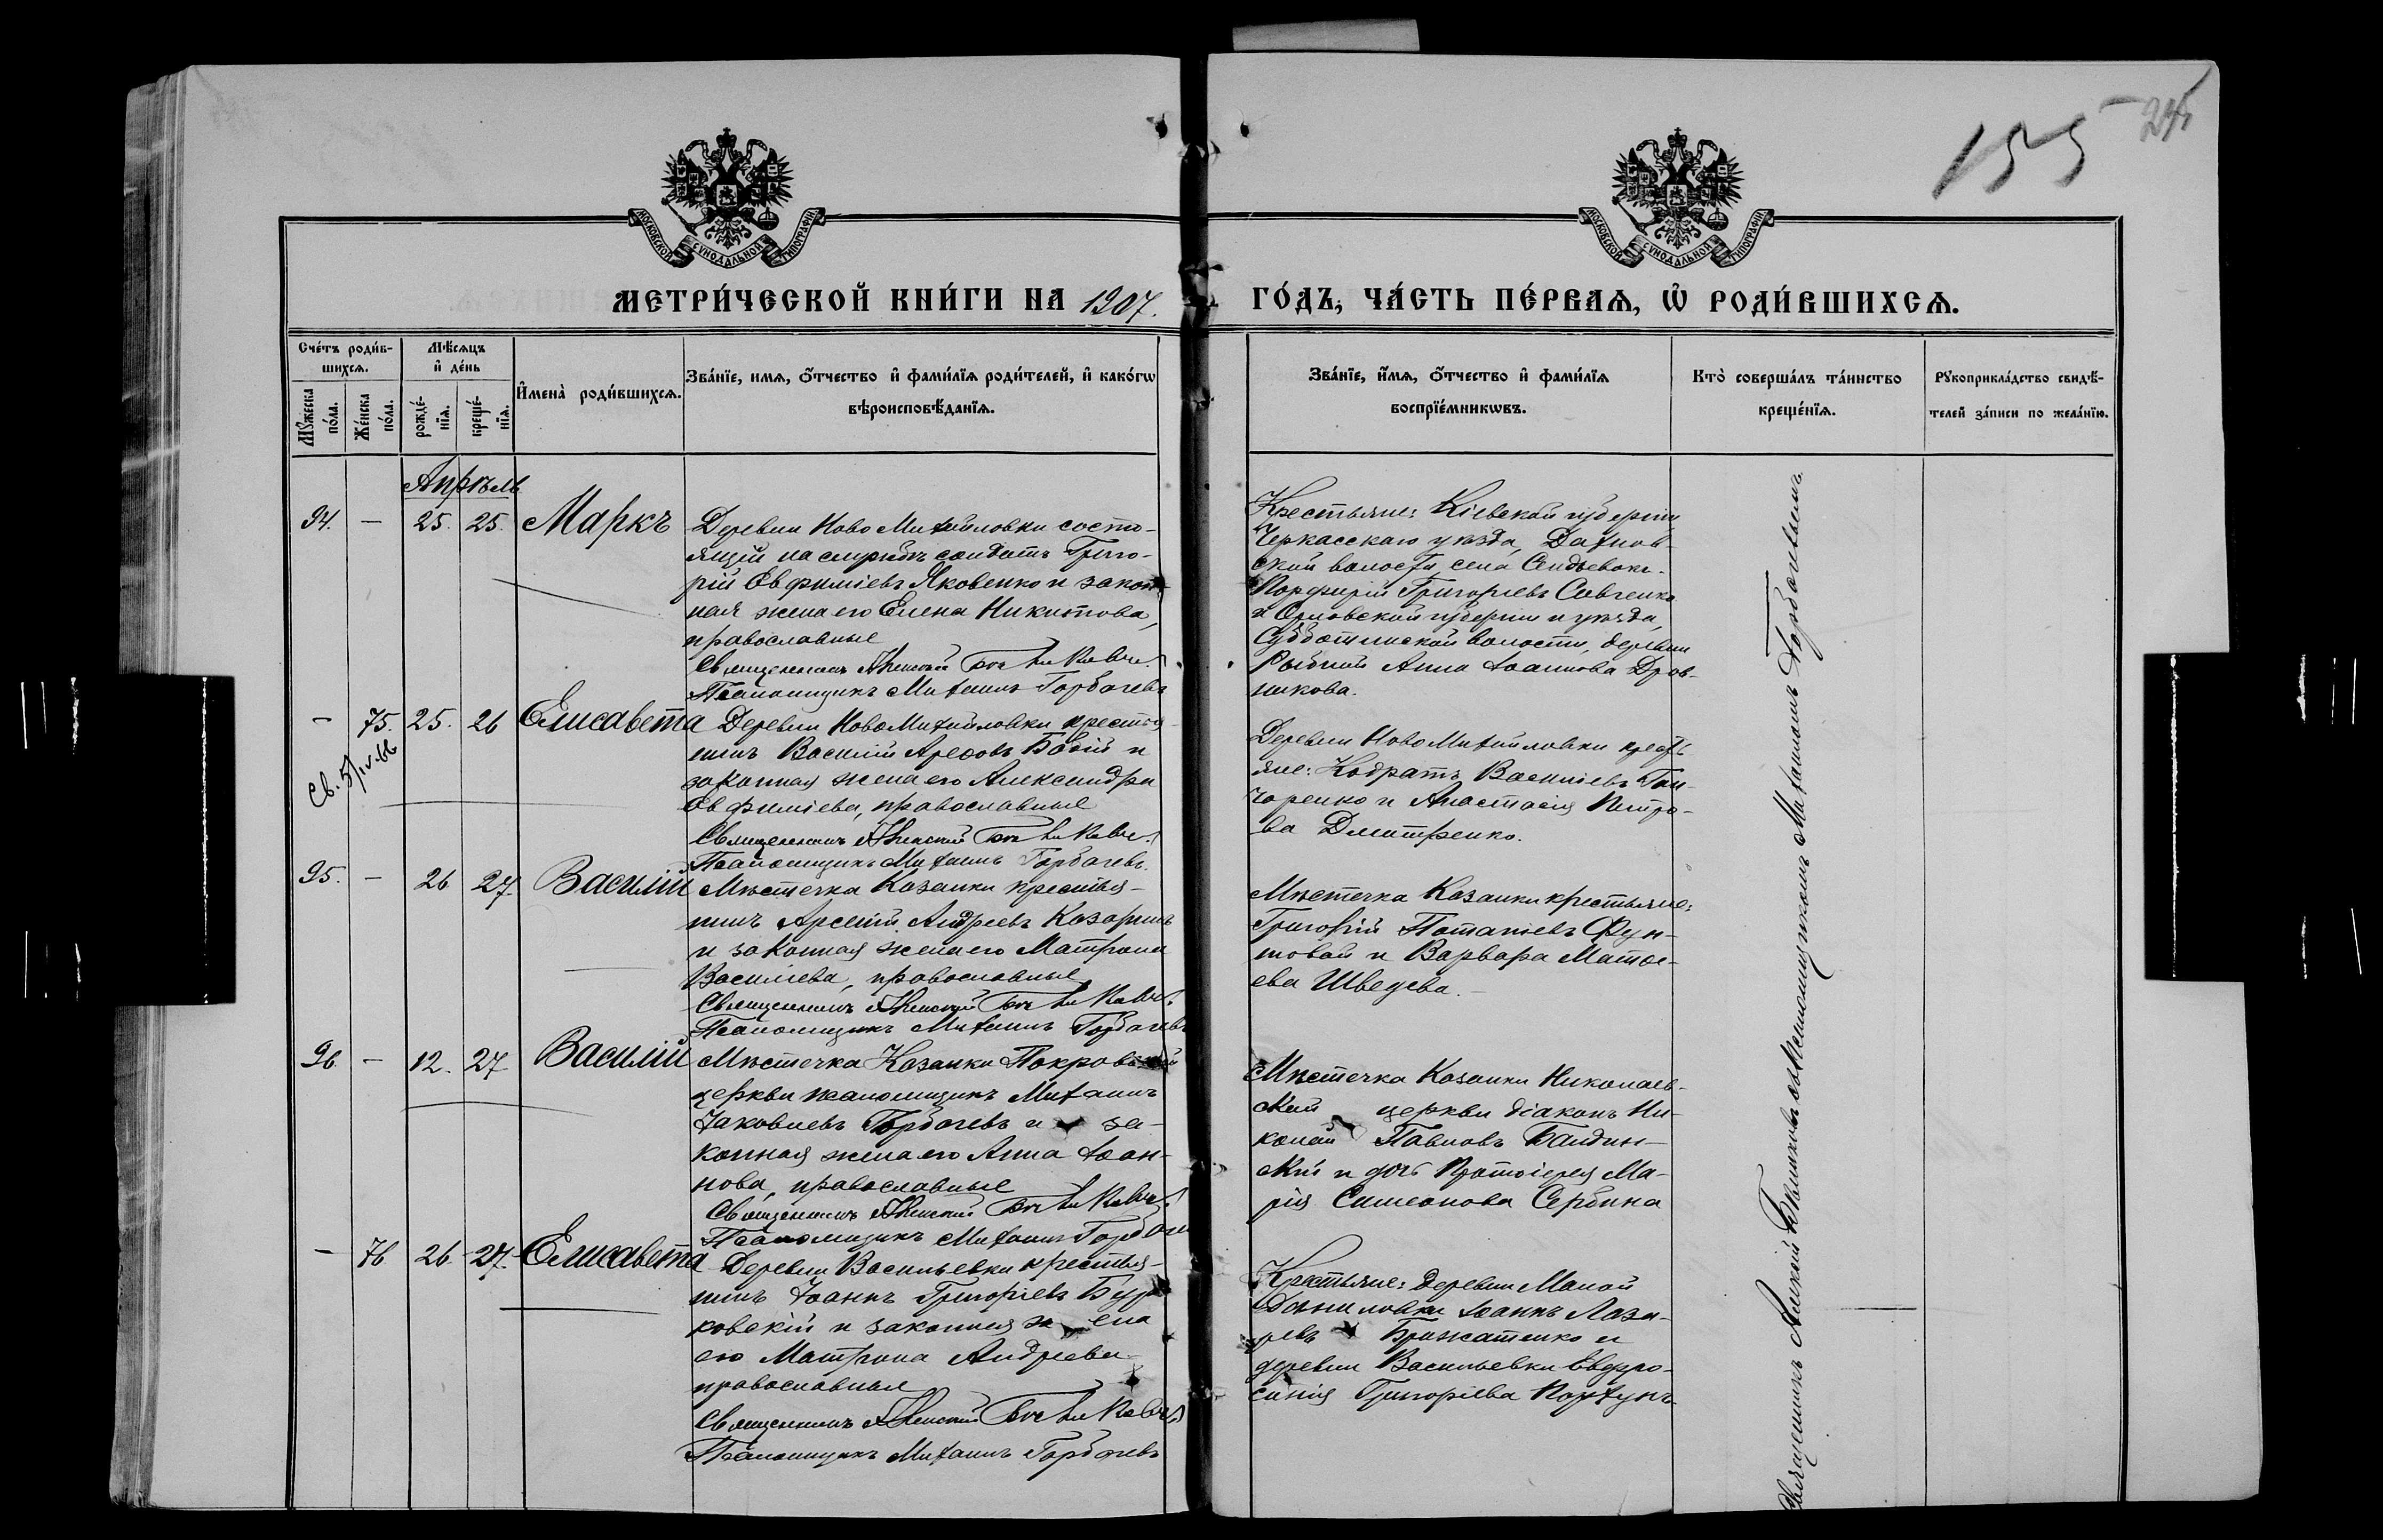 155
МОСКОВСКОЙ СУНОДАЛЬНОЙ ТИПОГРАФІИ
МОСКОВСКОЙ СУНОДАЛЬНОЙ ТИПОГРАФІИ
МЕТРИ́ЧЕСКОЙ КНИ́ГИ НА 1907.
ГО́ДЪ, ЧА́СТЬ ПЕ́РВАЯ, Ѡ РОДИ́ВШИХСЯ.
Сче́тъ роди́в-
шихся.
Мѣ́сяцъ
и҆ де́нь
Мꙋ́жеска
по́ла.
Же́нска
по́ла.
рожде́-
нїя.
креще́-
нїя.
И҆мена̀ роди́вшихся.
Зва́нїе, имя, ѻ҆́тчество и҆ фами́лїя роди́телей, и҆ како́гѡ
вѣроисповѣ́данїя.
Зва́нїе, и҆́мя, ѻ҆́тчество и҆ фами́лїя
воспрїе́мникѡвъ.
Кто̀ соверша́лъ та́инство
креще́нїя.
Рꙋкоприкла́дство свидѣ́-
телей за́писи по жела́нїю.
Апрѣль
94. — 25. 25. Маркъ
Деревни Ново Михайловки состо-
ящій на службѣ солдатъ Григо-
рій Евфиміевъ Яковенко и закон-
ная жена его Елена Никитова,
православные
Священникъ Алексій
Псаломщикъ Михаилъ Горбачевъ
Крестьяне: Кіевской губерніи
Черкасскаго уѣзда, Дахнов-
ской волости, села
Порфирій Григорьевъ Савченко
и Орловской губерніи и уѣзда,
волости, деревни
Анна Іоаннова Дров-
никова.
— 75. 25. 26 Елисавета
Св. 5/IV-66
Деревни Ново Михайловки крестья-
нинъ Василій и
законная жена его Александра
Евфиміева, православные
Священникъ Алексій
Псаломщикъ Михаилъ Горбачевъ.
Деревни Ново Михайловки кресть-
яне: Кодратъ Василіевъ Гон-
чаренко и Анастасія Петро-
ва Дмитренко.
95. — 26 27. Василій
Мѣстечка Казанки крестья-
нинъ Арсеній Андреевъ Козоринъ
и законная жена его Матрона
Василіева, православные
Священникъ Алексій
Псаломщикъ Михаилъ Горбачевъ
Мѣстечка Казанки крестьяне:
Григорій Потапіевъ Фун-
товой и Варвара Матѳе-
ева Шведева.
96. — 12. 27 Василій
Мѣстечка Казанки Покровской
церкви псаломщикъ Михаилъ
Іаковлевъ Горбачевъ и за-
конная жена его Анна Іоан-
нова, православные
Священникъ Алексій
Псаломщикъ Михаилъ Горбачевъ
Мѣстечка Казанки Николаев-
ской церкви діаконъ Ни-
колай Павловъ Балдин-
скій и дочь Протоіерея Ма-
рія Симеонова Сербина
— 76 26. 27. Елисавета
Деревни Васильевки крестья-
нинъ Іоаннъ Григоріевъ Бур-
ковскій и законная жена
его Матрона Андреева
православные
Священникъ Алексій
Псаломщикъ Михаилъ Горбачевъ
Крестьяне: деревни Малой
Даниловки Іоаннъ Лаза-
ревъ Брижатенко и
деревни Васильевки Евфро-
синія Григоріева
Священникъ Алексій съ псаломщикомъ Михаиломъ Горбачевымъ